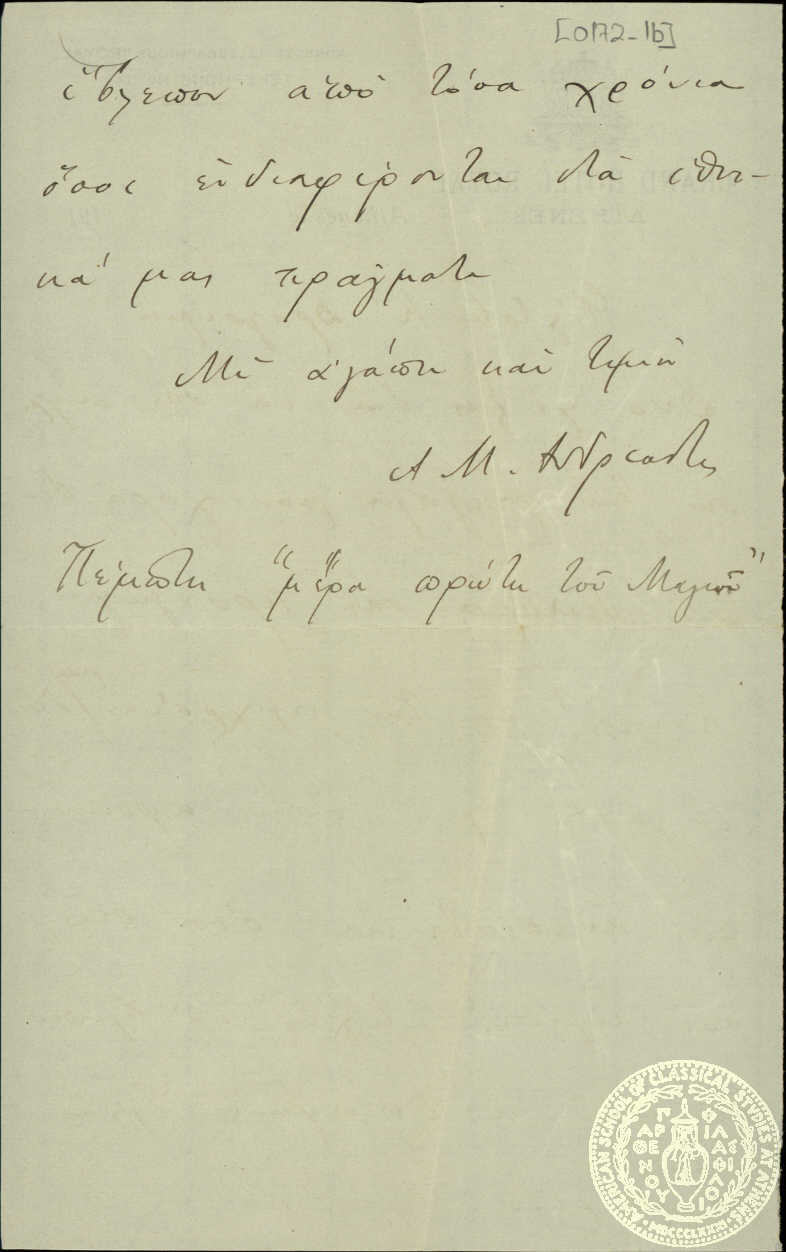 [0172-1b]
ἔβλεπον ἀπὸ τόσα χρόνια
ὅσοι ἐνδιαφέρονται διὰ ἐθνι-
κά μας πράγματα
Μὲ ἀγάπη καὶ τιμὴ
Α. Μ. Ἀνδρεάδης
Πέμπτη "μέρα πρώτη τοῦ Μαγιοῦ"
AMERICAN SCHOOL OF CLASSICAL STUDIES AT ATHENS
ΠΑΡΘΕΝΟΥ ΦΙΛΑΣ ΦΙΛΟΙ
MDCCCLXXXI